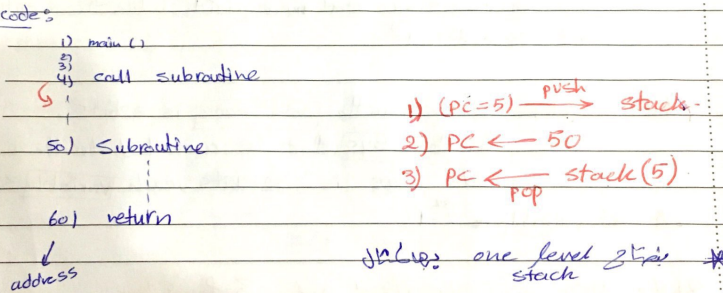 code:
1) main ()
2)
3)
4) call subroutine
50) Subroutine
60) return
address
1) (PC=5) push → stack.
2) PC ← 50
3) PC ← pop stack(5)
* one level
stack